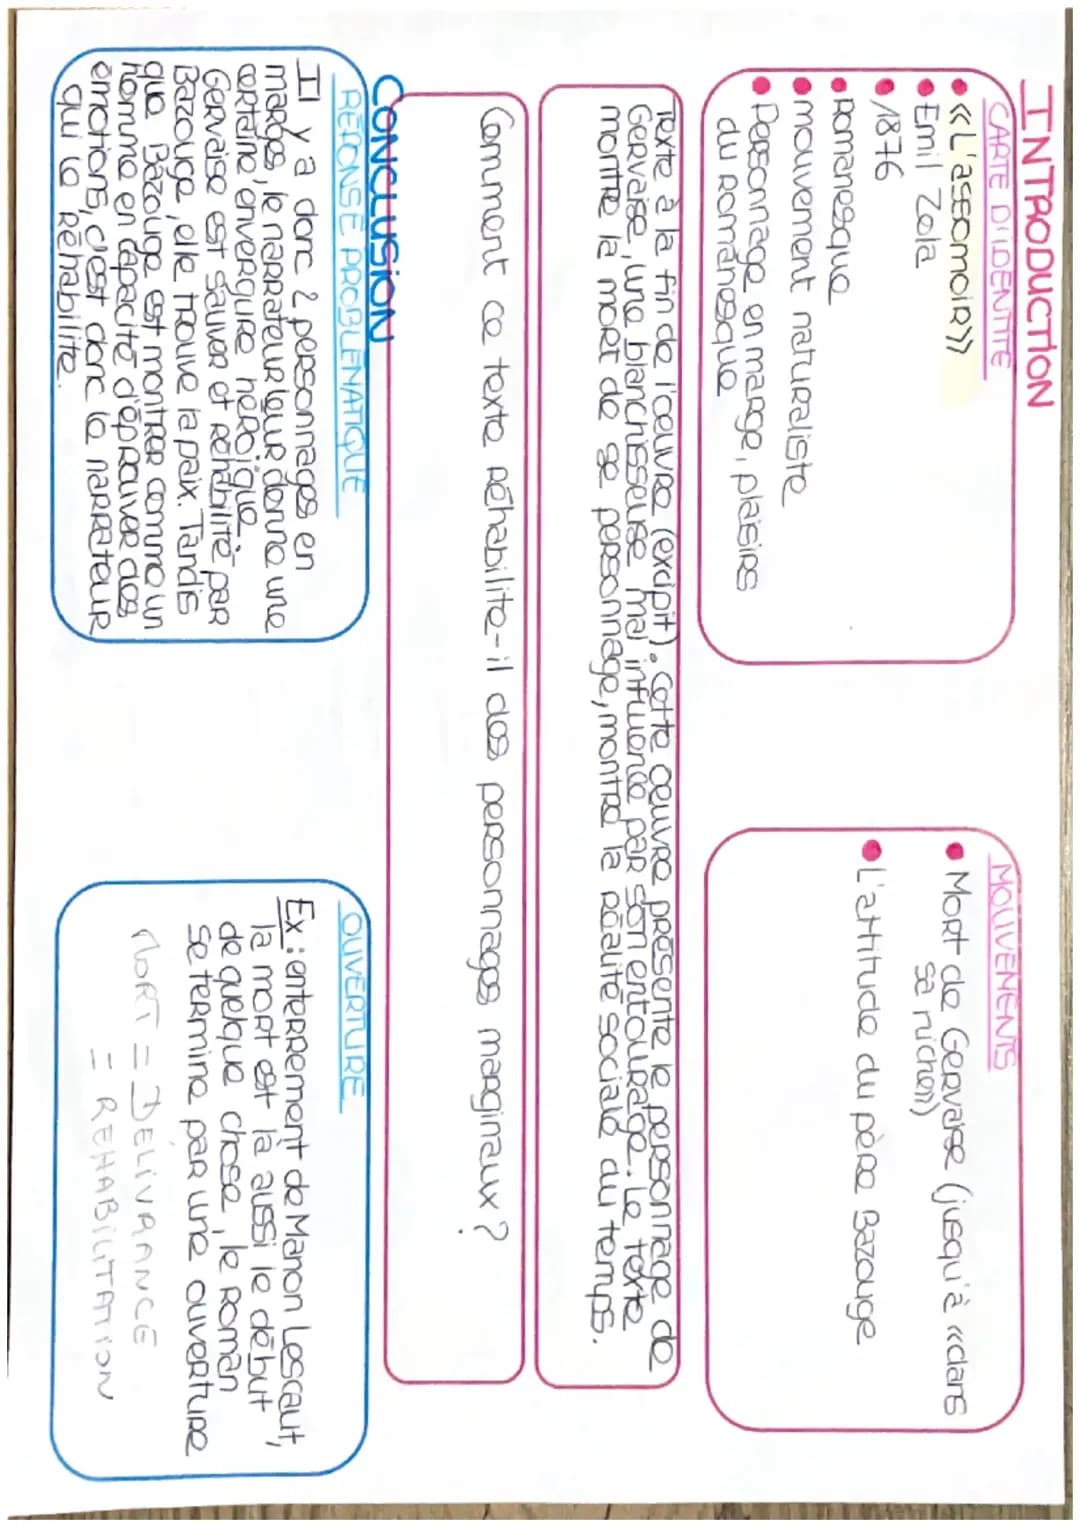 INTRODUCTION
CARTE D'IDENTITE
• «L'assomoir»
• Emil Zola
• 1876
• Romanesque
• mouvement naturaliste
• Personnage en marge, plaisirs
du Romanesque
MOUVEMENTS
• Mort de Gervaise (jusqu'à «dans
sa niche»)
• L'attitude du père Bazouge
Texte à la fin de l'oeuvre (excipit). Cette oeuvre présente le personnage de
Gervaise, une blanchisseuse mal influencé par son entourage. Le texte
montre la mort de se personnage, montre la réalité sociale du temps.
Comment ce texte Réhabilite-il des personnages marginaux ?
CONCLUSION
REPONSE PROBLEMATIQUE
Il y a donc 2 personnages en
marges, le narrateur leur donne une
certaine envergure héroïque.
Gervaise est sauver et Réhabilité par
Bazouge, elle trouve la paix. Tandis
que Bazouge est montrer comme un
homme en capacité d'éprouver des
émotions, c'est donc le narrateur
qui le Réhabilite.
OUVERTURE
Ex : enterrement de Manon Lescaut,
la mort est là aussi le début
de quelque chose, le Roman
se termine par une ouverture
MORT = DELIVRANCE
= REHABILITATION